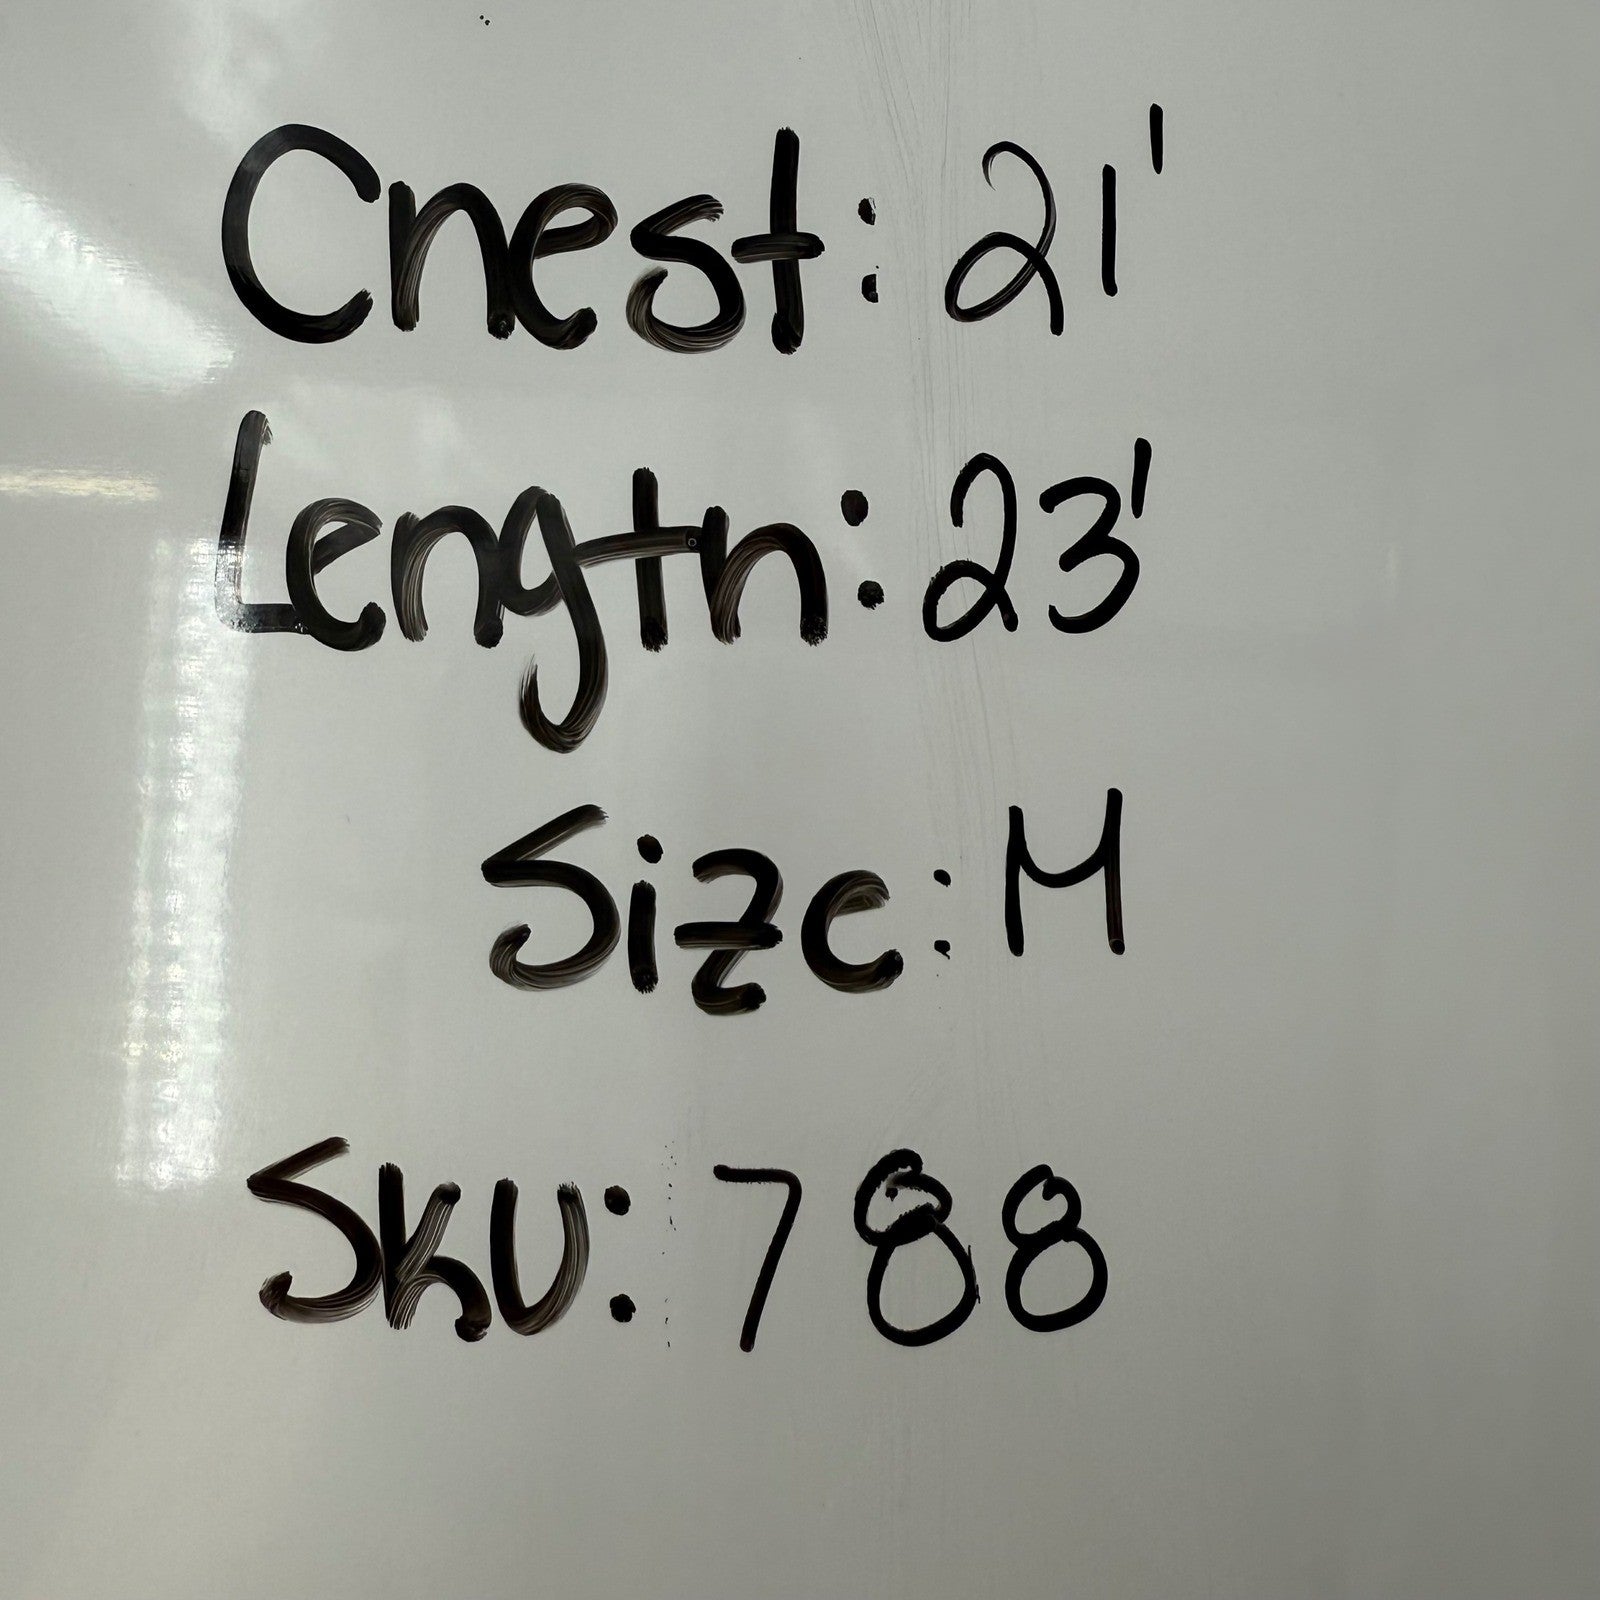 Chest: 21'
Length: 23'
Size: M
SKU: 788